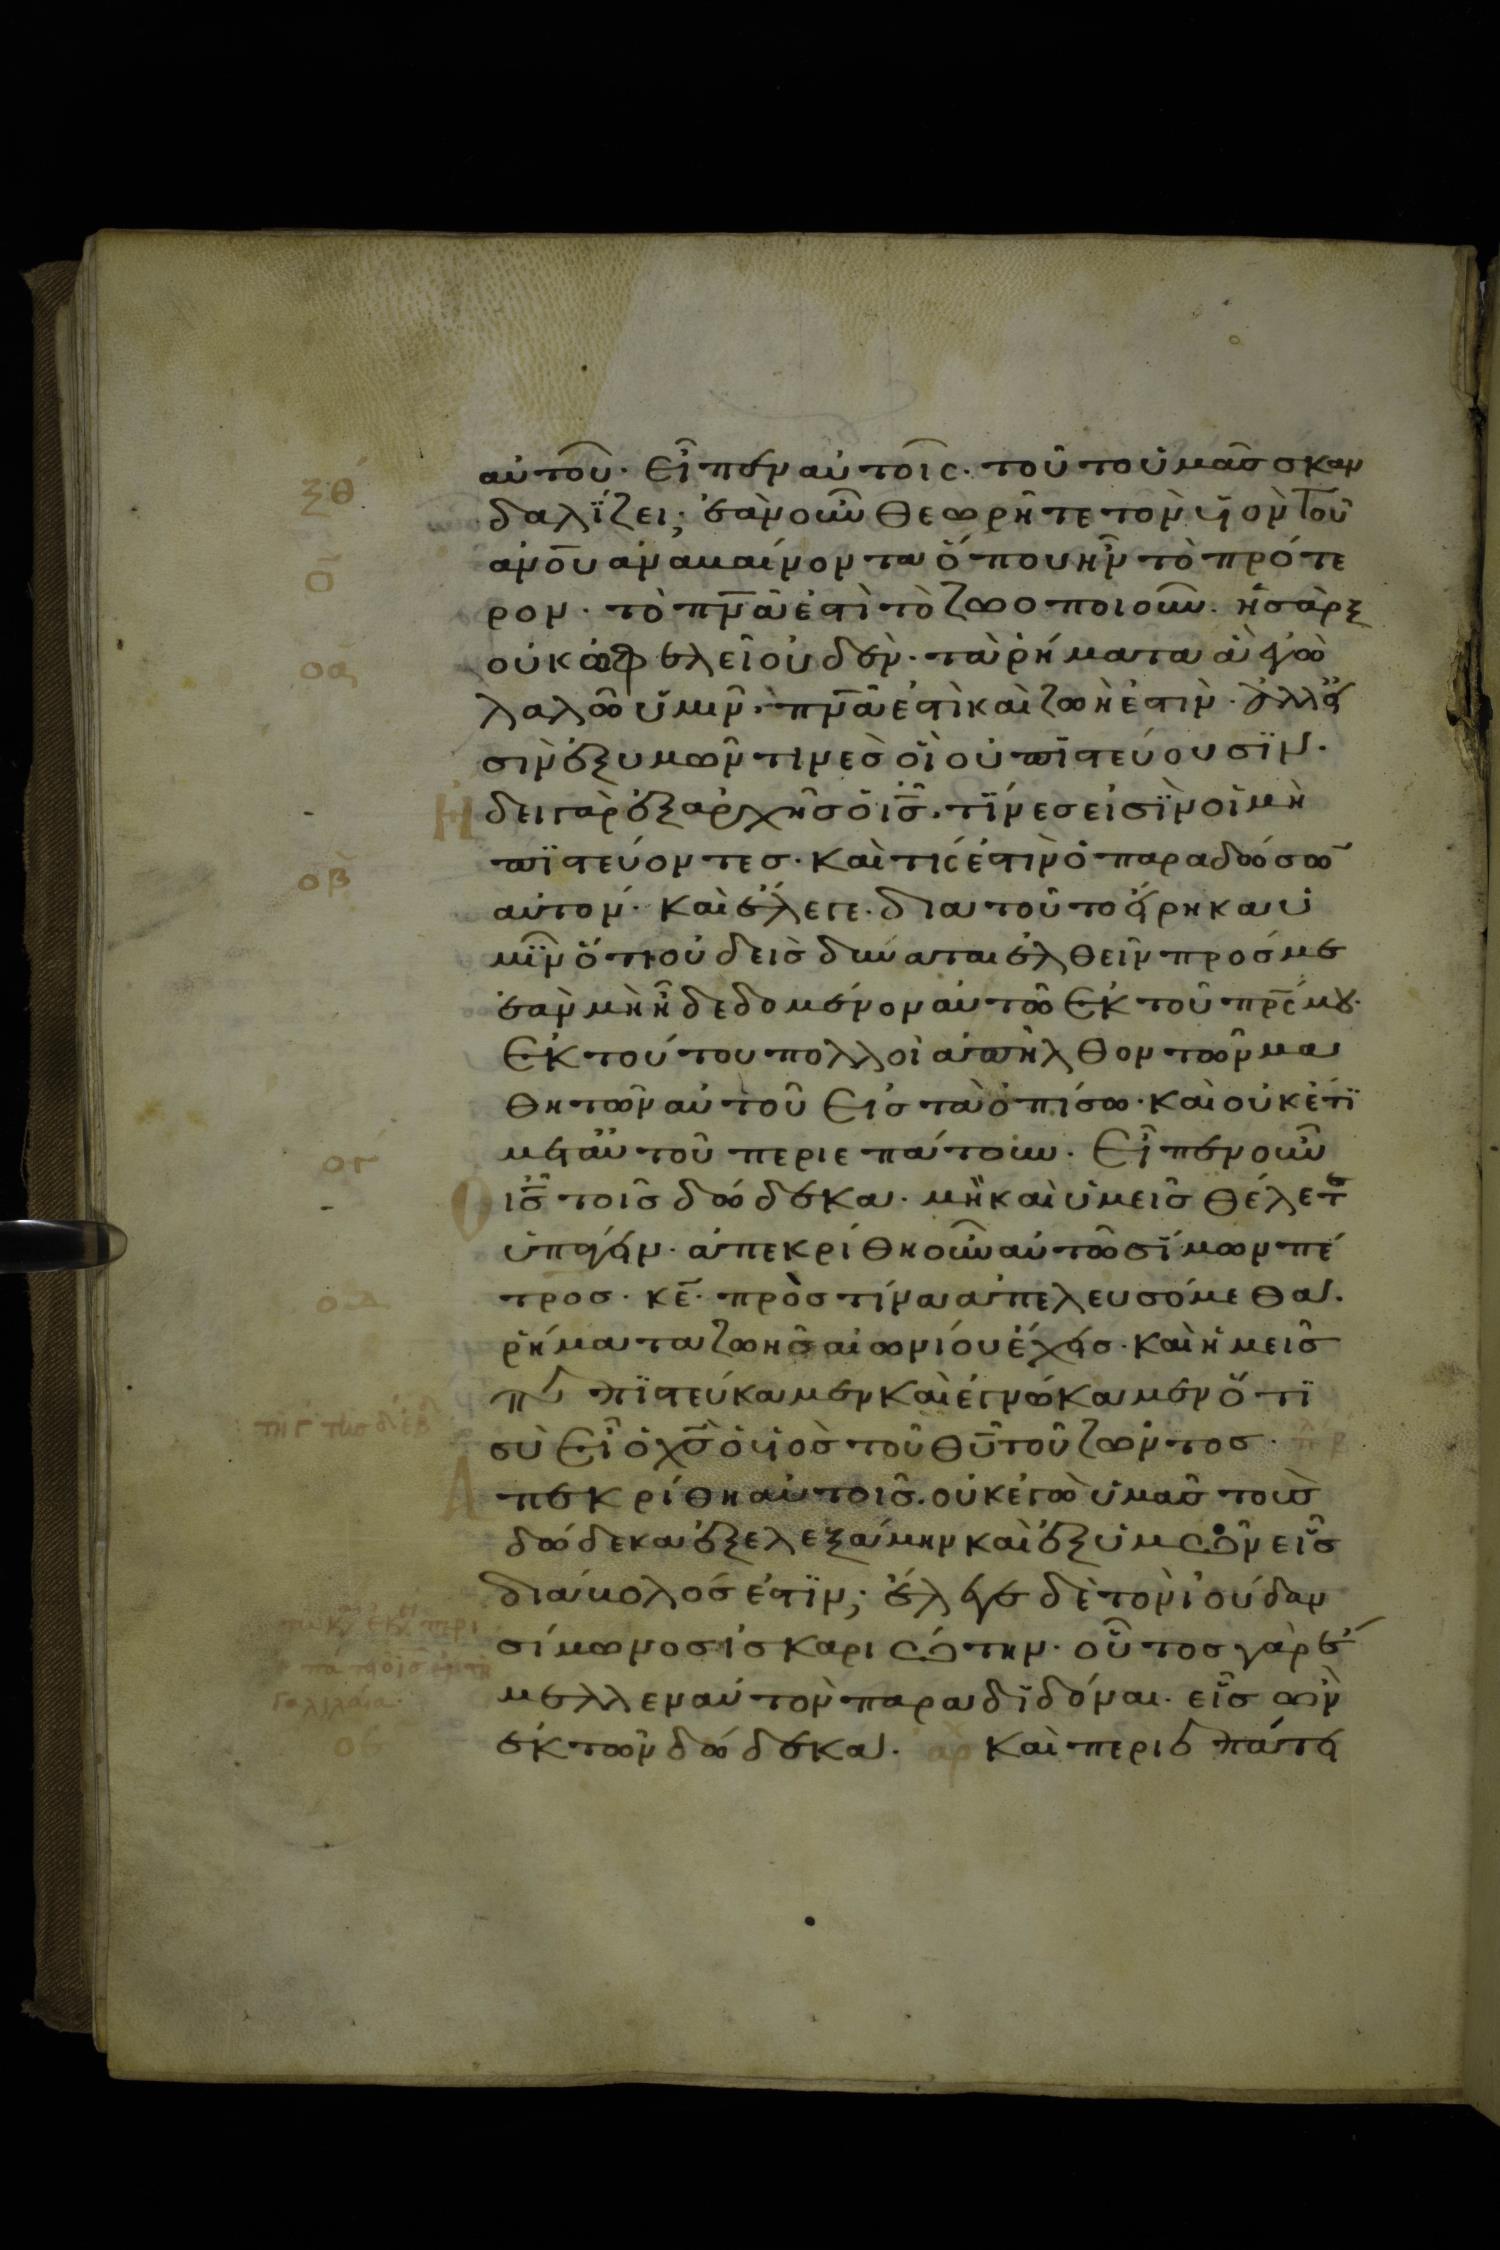 αὐτοῦ· Εἶπεν αὐτοῖς· τοῦτο ὑμᾶσ σκαν
ξθ
δαλΐζει; ἐὰν οὖν θεωρῆτε τὸν υἱὸν τοῦ
ἀνου ἀναβαίνοντα ὅπου ἦν τὸ πρότε
ο
ρον· τὸ πνα ἐστὶ τὸ ζωοποιοῦν· ἡ σὰρξ
οὐκ ὠφελεῖ οὐδὲν· τὰ ῥήματα ἃ ἐγὼ
οα
λαλῶ ὑμῖν· πνα ἐστὶ καὶ ζωὴ ἐστὶν· ἀλλ εἰ
σὶν ἐξ υμῶν τινεσ οἳ οὐ πιστεύουσϊν·
Ηδει γὰρ ἐξ ἀρχῆσ ὁ ισ· τΐνεσ εἰσῒν οἱ μὴ
πϊστεύοντεσ· καὶ τίς ἐστιν ὁ παραδώσω
οβ
αὐτον· καὶ ἔλεγε· δια τοῦτο εἴρηκα ὑ
μῖν ὅτι οὐδεὶσ δύναται ἐλθεῖν πρόσ με
ἐὰν μὴ ἦ δεδομένον αὐτῶ Ἐκ τοῦ πρσ μου·
Ἐκ τούτου πολλοὶ ἀπῆλθον τῶν μα
θητῶν αὐτοῦ Εἰσ τὰ ὀπίσω· καὶ οὐκέτϊ
ογ
μετ αὐτοῦ περιεπάτουν· Εἶπεν οὖν
Ο ισ τοῖσ δώδεκα· μὴ καὶ ὑμεῖσ θέλετε
ὑπάγειν· ἀπεκρίθη οὖν αὐτῶ σίμων πέ
οδ
τροσ· κε· πρὸσ τίνα ἀπελευσόμεθα·
ῥήματα ζωῆσ αἰωνίου ἔχεισ· καὶ ἡμεῖσ
πεπϊστεύκαμεν καὶ ἐγνώκαμεν ὅτϊ
σὺ Εἶ ὁ χσ ὁ υἱὸσ τοῦ θυ τοῦ ζῶντοσ·
Απεκρίθη αὐτοῖσ· οὐκ ἐγὼ ὑμᾶσ τοὺσ
δώδεκα ἐξελεξάμην καὶ ἐξ ὑμῶν εἷσ
διάβολόσ ἐστϊν; ἔλεγε δὲ τὸν ἰούδαν
σίμωνοσ ἰσκαριώτην· οὗτοσ γὰρ ἔ
μελλεν αὐτὸν παραδϊδόναι· εἷσ ὢν
Γαλιλαία·
ἐκ τῶν δώδεκα· αρ καὶ περιεπάτει